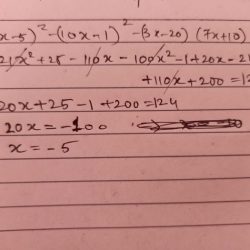 x-5)² -(10x-1)² -(3x-20) (7x+10)
21x²+25 - 110x - 100x² -1+20x - 21
+110x+200 = 12
20x+25-1+200=124
20x = -100
x = -5